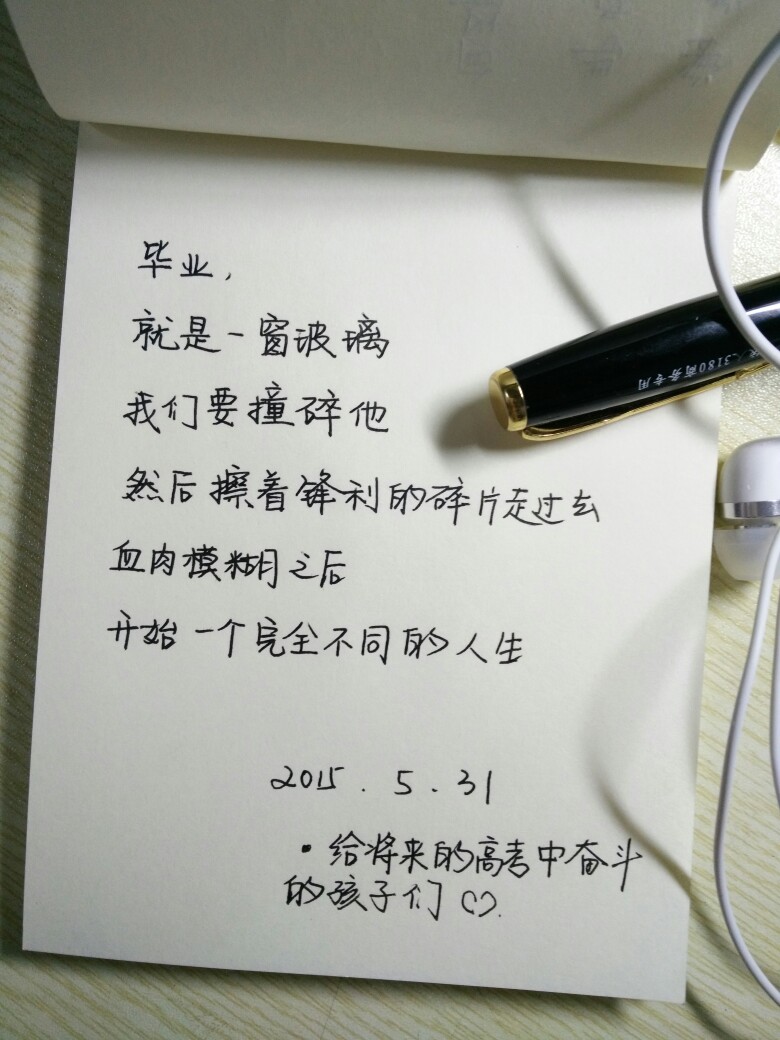 毕业,
就是一窗玻璃
我们要撞碎他
然后擦着锋利的碎片走过去
血肉模糊之后
开始一个完全不同的人生
2015.5.31
·给将来的高考中奋斗
的孩子们♡.
3180商务专用